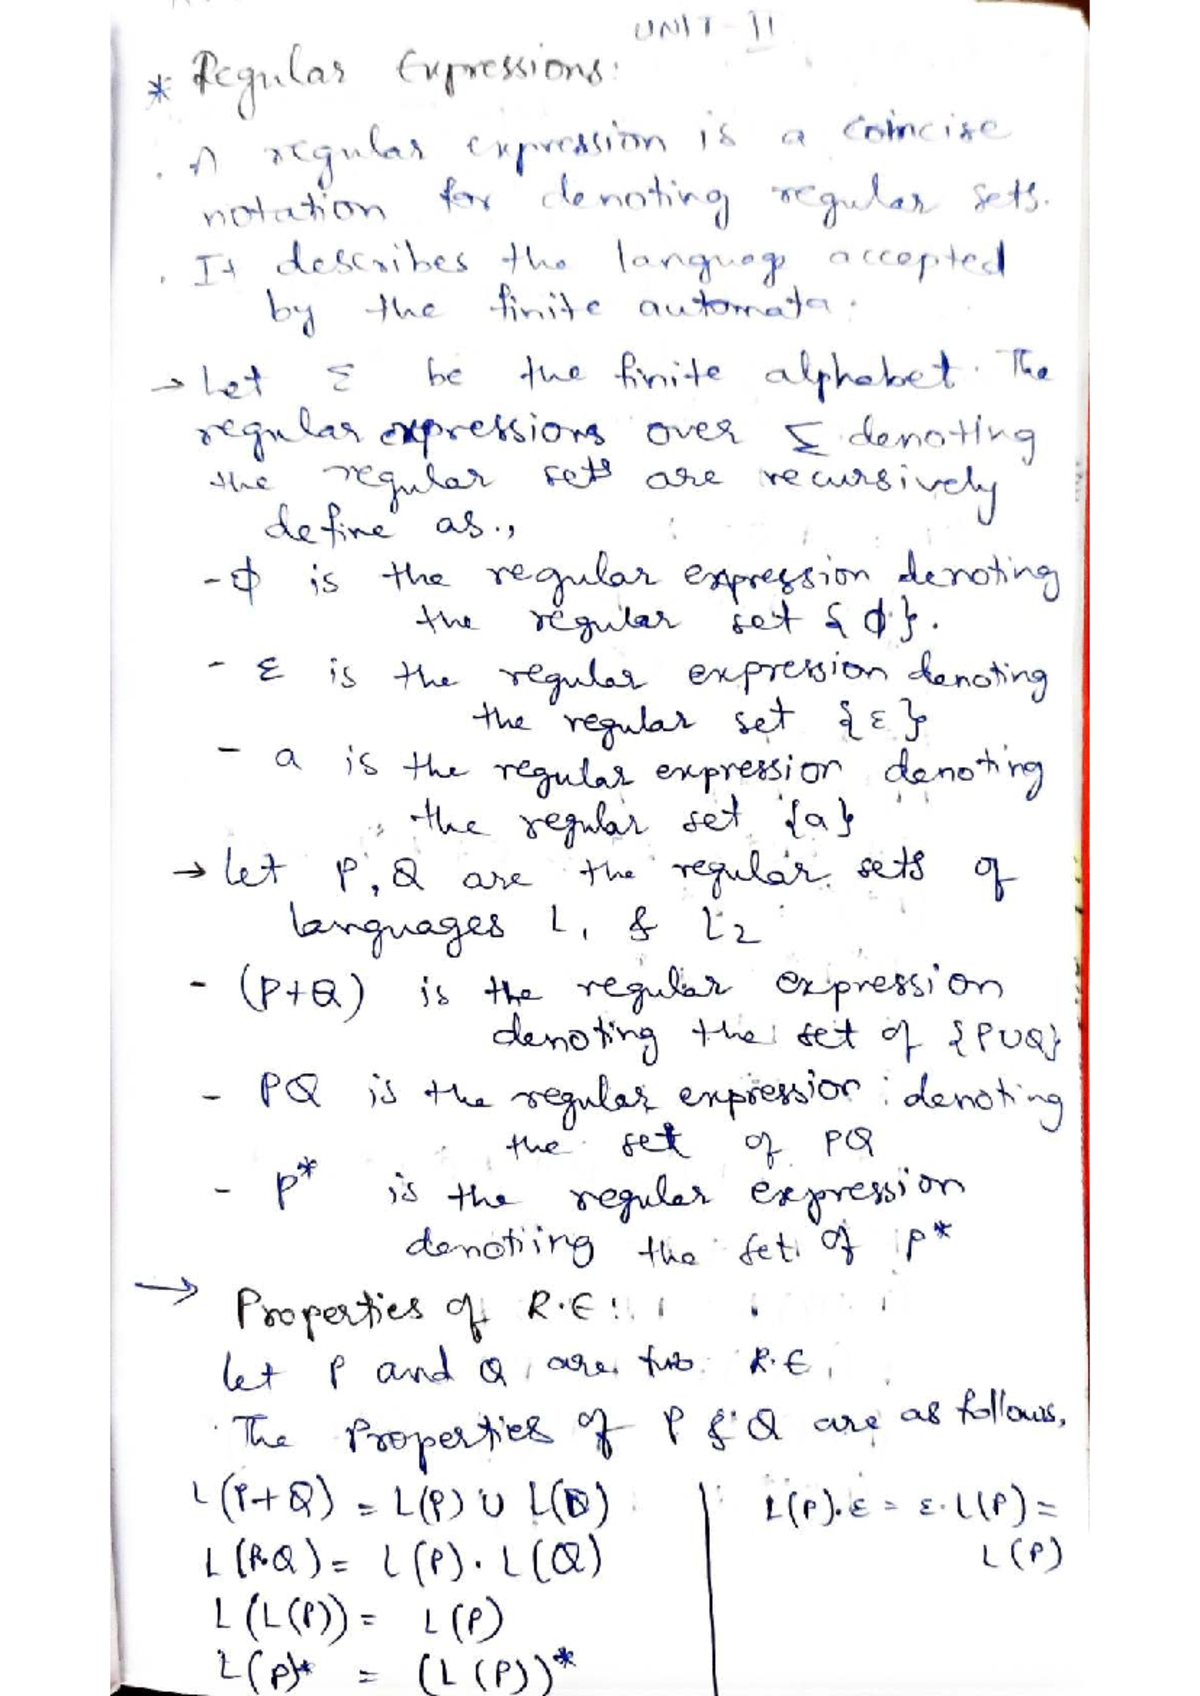 UNIT-II
* Regular Expressions:
. A regular expression is a coincise
notation for denoting regular sets.
. It describes the languag accepted
by the finite automata.
→ Let Σ be the finite alphabet. The
regular expressions over Σ denoting
the regular sets are recursively
define as.,
- ϕ is the regular expression denoting
the regular set {ϕ}.
- ε is the regular expression denoting
the regular set {ε}
- a is the regular expression denoting
the regular set {a}
→ let P, Q are the regular sets of
languages L1 & L2
- (P+Q) is the regular expression
denoting the set of {PUQ}
- PQ is the regular expression denoting
the set of PQ
- P* is the regular expression
denotiing the set of P*
→ Properties of R.E:
let P and Q are two R.E,
The Properties of P & Q are as follows,
L(P+Q) = L(P) U L(Q)
L(P.Q) = L(P). L(Q)
L(L(P)) = L(P)
L(P)* = (L(P))*
L(P).ε = ε.L(P) =
L(P)